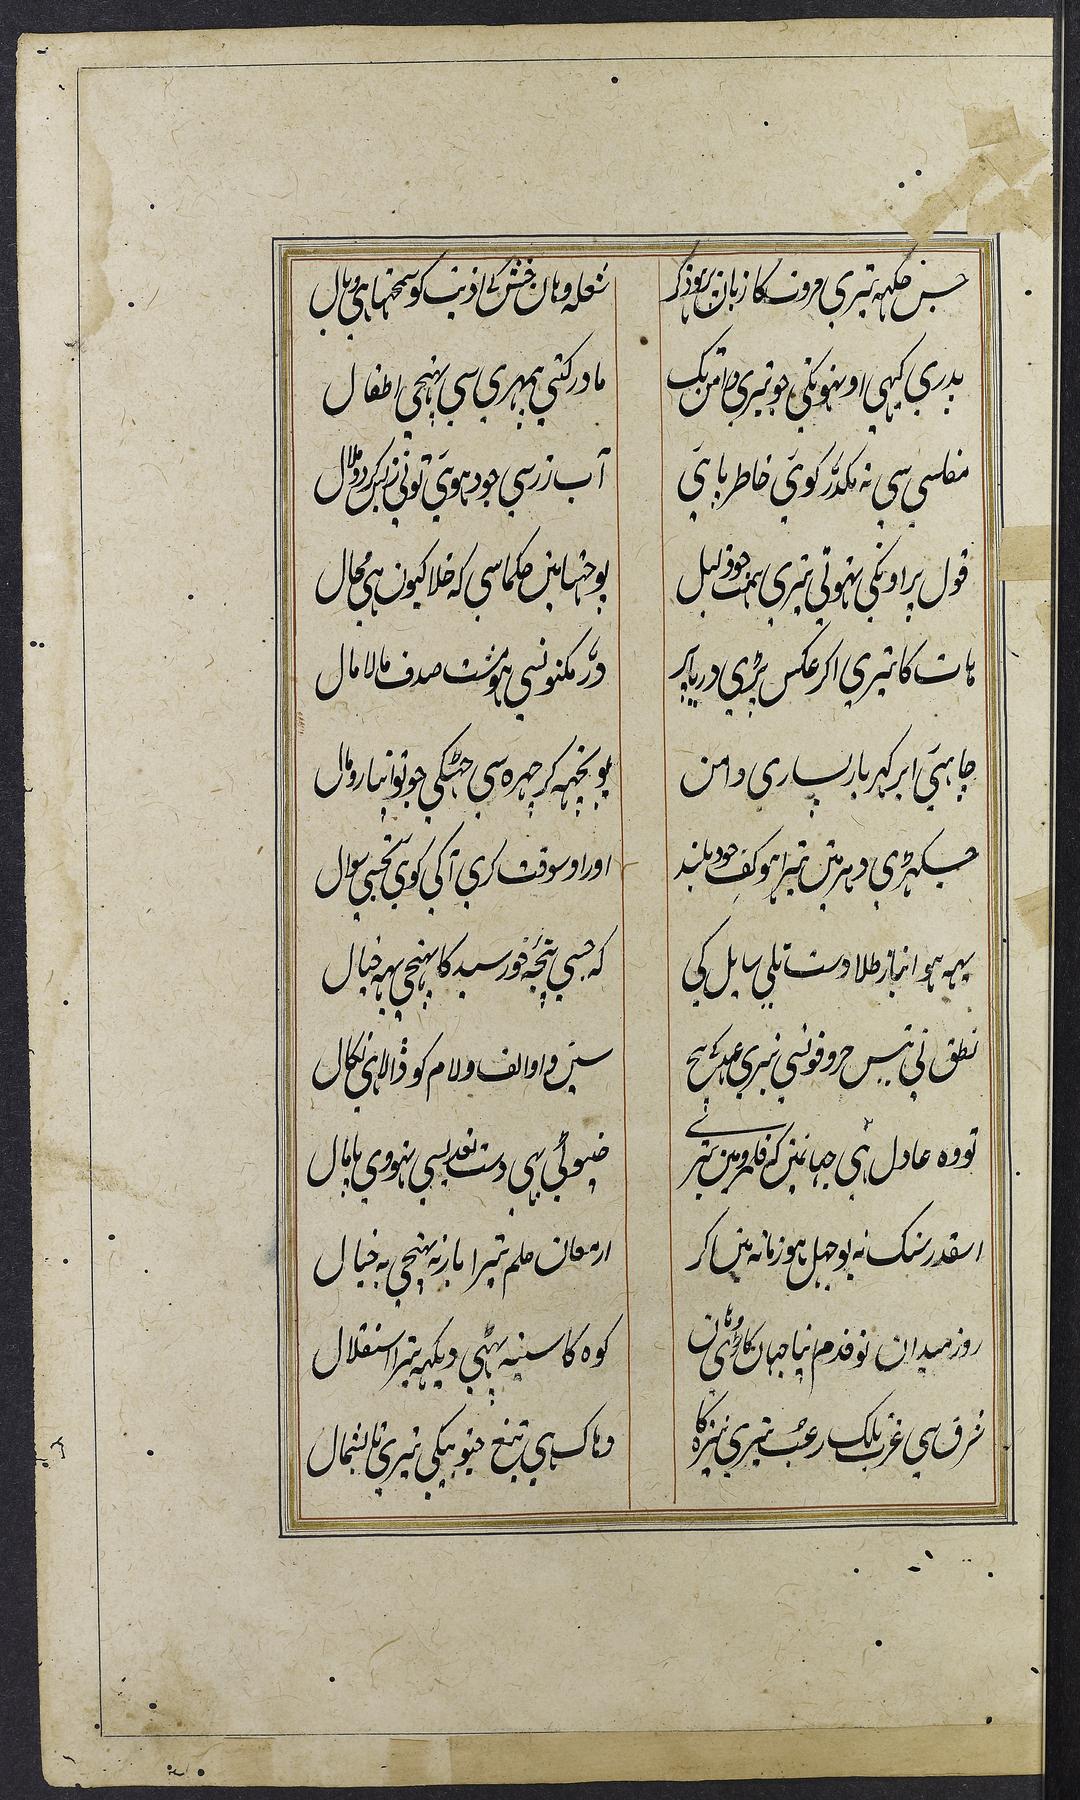 جس جکہہ تیری مروت کا زبان پر ہو ذکر
شعلہ وہان خس کے اذیت کو سمجھتا ہی وبال
پدری کیہی اونہو نکی جو تیری دامن تک
مادر کتی بیمہری سی پہنچی اطفال
مفلسی سی نہ مکدّر کوئی خاطر پائی
آب زر سی جود ہوئی تونی ز بس کرد ملال
قول پر اونکی نہوتی تیری ہمت جو دلیل
پوچہتا مین حکما سی کہ خلا کیون ہی محال
ہات کا تیری اکر عکس پڑی دریا پر
درّ مکنونسی ہو مشت صدف مالامال
چاہئی ابر کہر بار پساری دامن
پونچہہ کر چہرہ سی جہٹکی جو تو اپنا رومال
جسکہڑی دہر مین تیرا ہو کف جود بلند
اور اوسوقت کری آکی کوئی تجسی سوال
یہہ ہو انبار طلا دست تلی سایل کی
کہ جسی پنجۂ خورشید کا پہنچی نہ خیال
نطق نی تیس حروفونسی تیری عہد کے بیچ
سین و واو الف و لام کو ڈالا ہی نکال
تو وہ عادل ہی جہانمین کہ قلمرو مین تیرے
چیونٹی بہی دست تعدیسی نہووی پامال
اسقدر سنک نہ بوجہل ہو زمانہ مین اکر
ارمغان حلم تیرا بار نہ پہنچی بہ خیال
روز میدان تو قدم اپنا جہان کاڑی وہان
کوہ کا سینہ پہٹی دیکہہ تیرا استقلال
شرق سی غرب تلک رعب تیری نیزہ کا
دہاک ہی تیغ جنوبیکی تیری تا بشمال